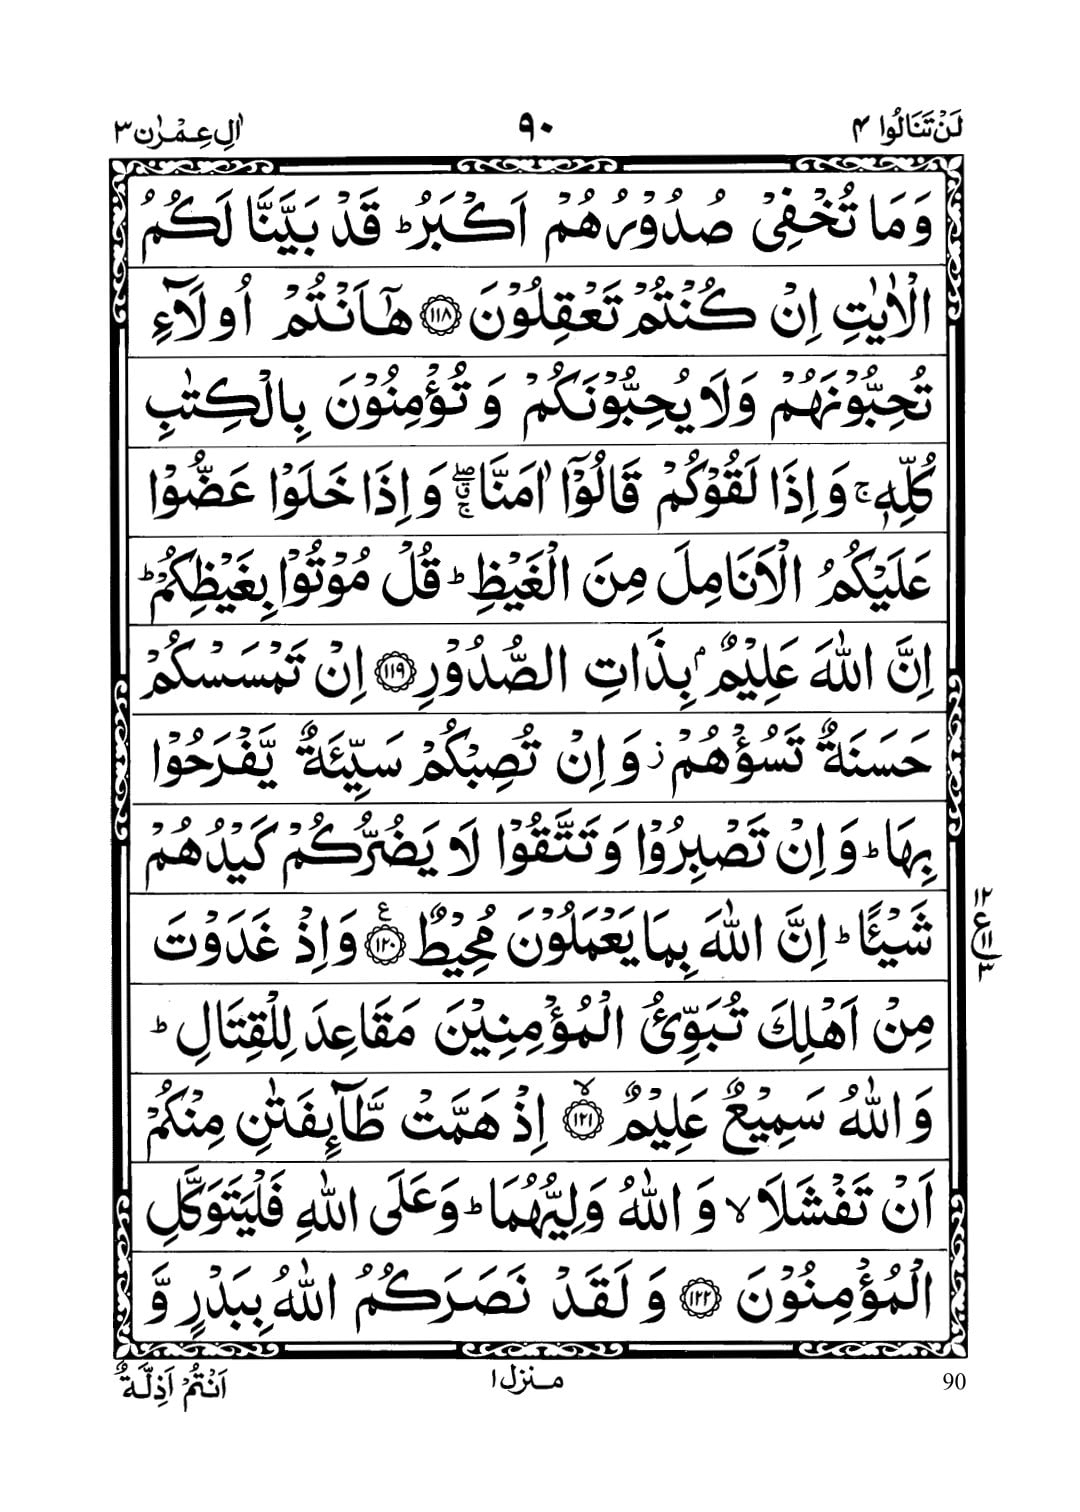 لَنْ تَنَالُوا ۴
۹۰
اٰلِ عِمْرٰن ۳
وَمَا تُخْفِیْ صُدُوْرُهُمْ اَكْبَرُ ؕ قَدْ بَیَّنَّا لَكُمُ
الْاٰیٰتِ اِنْ كُنْتُمْ تَعْقِلُوْنَ ﴿۱۱۸﴾ هٰۤاَنْتُمْ اُولَآءِ
تُحِبُّوْنَهُمْ وَلَا یُحِبُّوْنَكُمْ وَ تُؤْمِنُوْنَ بِالْكِتٰبِ
كُلِّهٖ ۚ وَ اِذَا لَقُوْكُمْ قَالُوْۤا اٰمَنَّا ۖۗۚ وَ اِذَا خَلَوْا عَضُّوْا
عَلَیْكُمُ الْاَنَامِلَ مِنَ الْغَیْظِ ؕ قُلْ مُوْتُوْا بِغَیْظِكُمْ ؕ
اِنَّ اللّٰهَ عَلِیْمٌۢ بِذَاتِ الصُّدُوْرِ ﴿۱۱۹﴾ اِنْ تَمْسَسْكُمْ
حَسَنَةٌ تَسُؤْهُمْ ز وَ اِنْ تُصِبْكُمْ سَیِّئَةٌ یَّفْرَحُوْا
بِهَا ؕ وَ اِنْ تَصْبِرُوْا وَ تَتَّقُوْا لَا یَضُرُّكُمْ كَیْدُهُمْ
شَیْـًٔا ؕ اِنَّ اللّٰهَ بِمَا یَعْمَلُوْنَ مُحِیْطٌ ﴿۱۲۰﴾ ع وَ اِذْ غَدَوْتَ
۱۲
ع ۱۱
۳
مِنْ اَهْلِكَ تُبَوِّئُ الْمُؤْمِنِیْنَ مَقَاعِدَ لِلْقِتَالِ ؕ
وَ اللّٰهُ سَمِیْعٌ عَلِیْمٌ ﴿۱۲۱﴾ ۙ اِذْ هَمَّتْ طَّآىِٕفَتٰنِ مِنْكُمْ
اَنْ تَفْشَلَا ۙ وَ اللّٰهُ وَلِیُّهُمَا ؕ وَ عَلَی اللّٰهِ فَلْیَتَوَكَّلِ
الْمُؤْمِنُوْنَ ﴿۱۲۲﴾ وَ لَقَدْ نَصَرَكُمُ اللّٰهُ بِبَدْرٍ وَّ
اَنْتُمْ اَذِلَّةٌ
منزل ۱
90